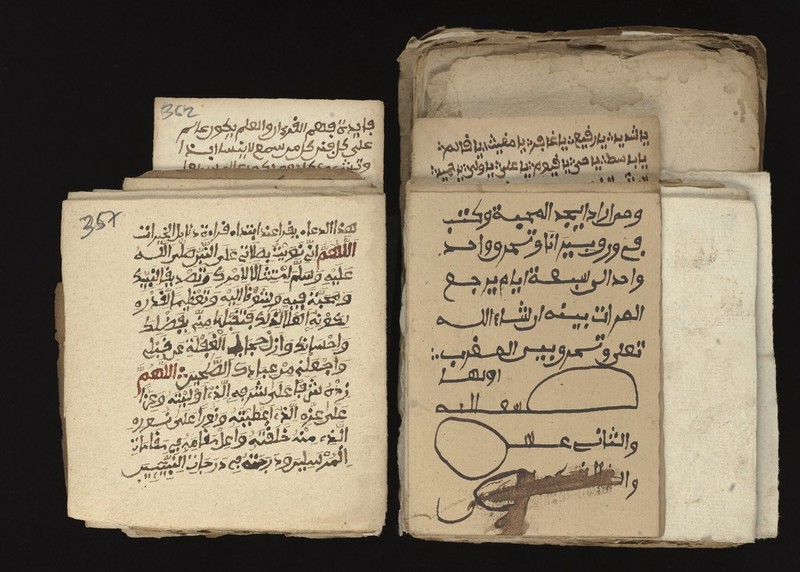 362
فايدة فهم القرءان والعلم يكون عالم
على كل فن كل من سمع لا ينسا ابدا
357
هذا الدعاء يقرا عند ابتداء قراءة دلايل الخيرات
اللهم اني نويت بصلاتي على النبي صلى الله
عليه وسلم امتثالا لامرك وتصديقا لنبيك
ومحبة فيه وشوقا اليه وتعظيما لقدره
بكونه اهلا لذلك فتقبلها منه بفضلك
واحسانك وازل حجاب الغفلة عن قلبي
واجعلني من عبادك الصلحين اللهم
زده شرفا على شرفه الذي اوليته وعزا
على عزه الذي اعطيته ونورا على نوره
الذي منه خلقته واعل مقامه في مقامات
المرسلين ودرجته في درجات النبيين
يا شديد يا رفيع يا غافر يا مغيث يا قائم
يا باسط يا حي يا قيوم يا علي يا ولي يا حميد
ومن اراد ايجد المحبة وكتب
في وتمر وواحد
واحد الى سبعة ايام يرجع
بينه ان شاء الله
تعلى وتمر وبين المغرب
والثاني